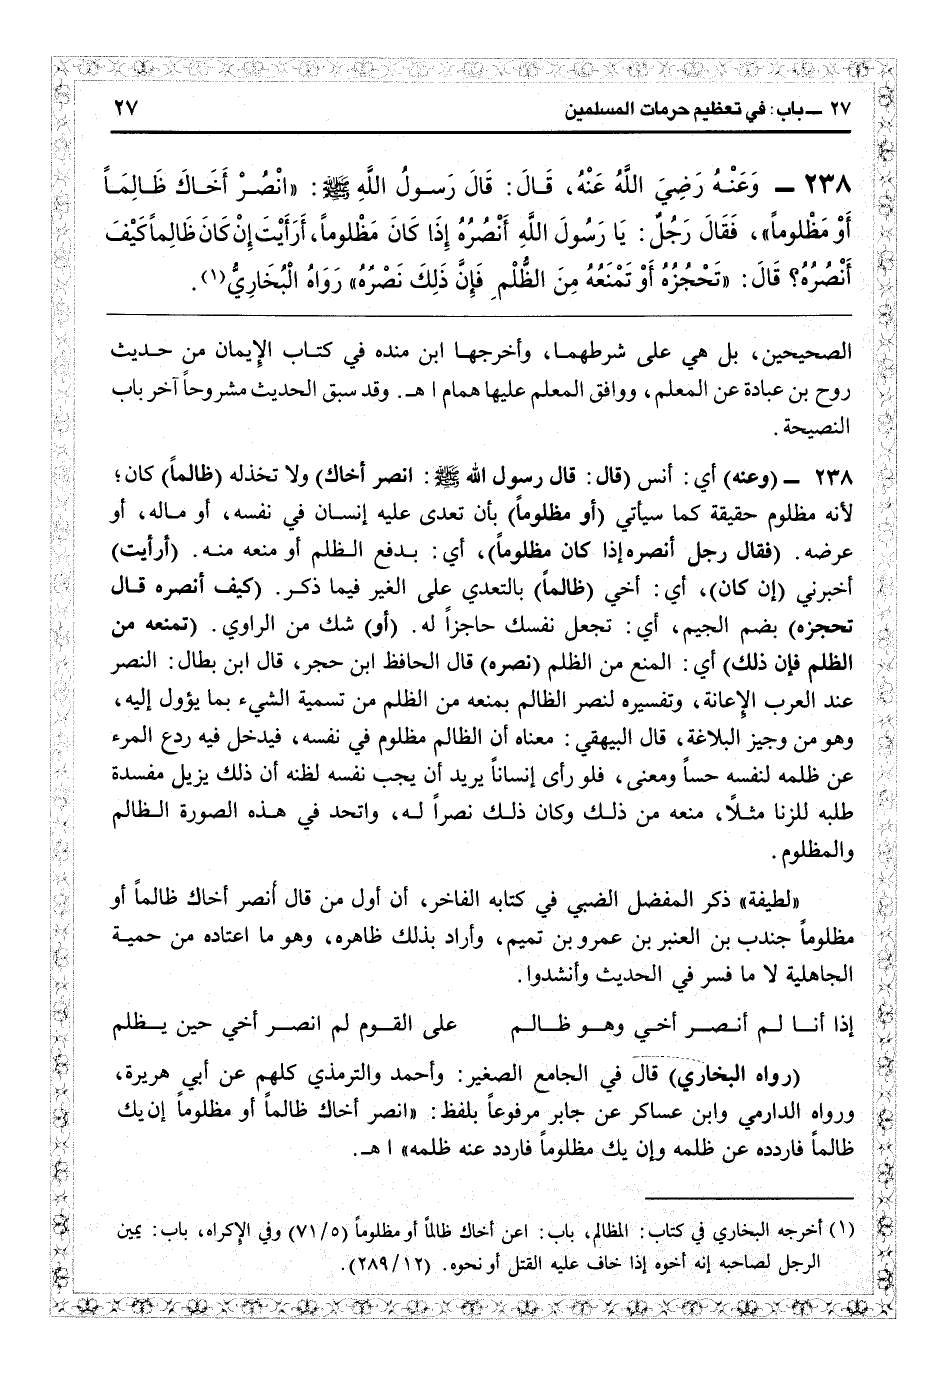 ٢٧ ــ باب: في تعظيم حرمات المسلمين ٢٧
٢٣٨ ــ وَعَنْـهُ رَضِيَ اللَّهُ عَنْهُ، قَـالَ: قَالَ رَسـولُ اللَّهِ ﷺ: «انْصُـرْ أَخَـاكَ ظَـالِمَـاً
أَوْ مَظْلوماً»، فَقَالَ رَجُلٌ: يَا رَسُولَ اللَّهِ أَنْصُرُهُ إِذَا كَانَ مَظْلوماً، أَرَأَيْتَ إِنْ كَانَ ظَالِماً كَيْفَ
أَنْصُرُهُ؟ قَالَ: «تَحْجُزُهُ أَوْ تَمْنَعُهُ مِنَ الظُّلْمِ فَإِنَّ ذَلِكَ نَصْرُهُ» رَوَاهُ الْبُخَارِيُّ(١).
الصحيحين، بل هي على شرطهمـا، وأخرجهـا ابن منده في كتاب الإيمان من حديث
روح بن عبادة عن المعلم، ووافق المعلم عليها همام ا هـ. وقد سبق الحديث مشروحاً آخر باب
النصيحة.
٢٣٨ ــ (وعنه) أي: أنس (قال: قال رسول الله ﷺ: انصر أخاك) ولا تخذله (ظالماً) كان؛
لأنه مظلوم حقيقة كما سيأتي (أو مظلوماً) بأن تعدى عليه إنسـان في نفسه، أو مـاله، أو
عرضه. (فقال رجل أنصره إذا كان مظلوماً)، أي: بـدفع الـظلم أو منعه منـه. (أرأيت)
أخبرني (إن كان)، أي: أخي (ظالماً) بالتعدي على الغير فيما ذكـر. (كيف أنصره قـال
تحجزه) بضم الجيم، أي: تجعل نفسك حاجزاً له. (أو) شك من الراوي. (تمنعه من
الظلم فإن ذلك) أي: المنع من الظلم (نصره) قال الحافظ ابن حجر، قال ابن بطال: النصر
عند العرب الإعانة، وتفسيره لنصر الظالم بمنعه من الظلم من تسمية الشيء بما يؤول إليه،
وهو من وجيز البلاغة، قال البيهقي: معناه أن الظالم مظلوم في نفسه، فيدخل فيه ردع المرء
عن ظلمه لنفسه حساً ومعنى، فلو رأى إنساناً يريد أن يجب نفسه لظنه أن ذلك يزيل مفسدة
طلبه للزنا مثـلًا، منعه من ذلـك وكان ذلـك نصراً لـه، واتحد في هـذه الصورة الـظالم
والمظلوم.
«لطيفة» ذكر المفضل الضبي في كتابه الفاخر، أن أول من قال أُنصر أخاك ظالماً أو
مظلوماً جندب بن العنبر بن عمرو بن تميم، وأراد بذلك ظاهره، وهو ما اعتاده من حميـة
الجاهلية لا ما فسر في الحديث وأنشدوا.
إذا أنـا لـم أنـصـر أخـي وهـو ظـالـم على القـوم لم انصـر أخي حين يـظلم
(رواه البخاري) قال في الجامع الصغير: وأحمد والترمذي كلهم عن أبي هريرة،
ورواه الدارمي وابن عساكر عن جابر مرفوعاً بلفظ: «انصر أخاك ظالماً أو مظلوماً إن يك
ظالماً فاردده عن ظلمه وإن يك مظلوماً فاردد عنه ظلمه» ا هـ.
(١) أخرجه البخاري في كتاب: المظالم، باب: اعن أخاك ظالماً أو مظلوماً (٧١/٥) وفي الإكراه، باب: يمين
الرجل لصاحبه إنه أخوه إذا خاف عليه القتل أو نحوه. (٢٨٩/١٢).